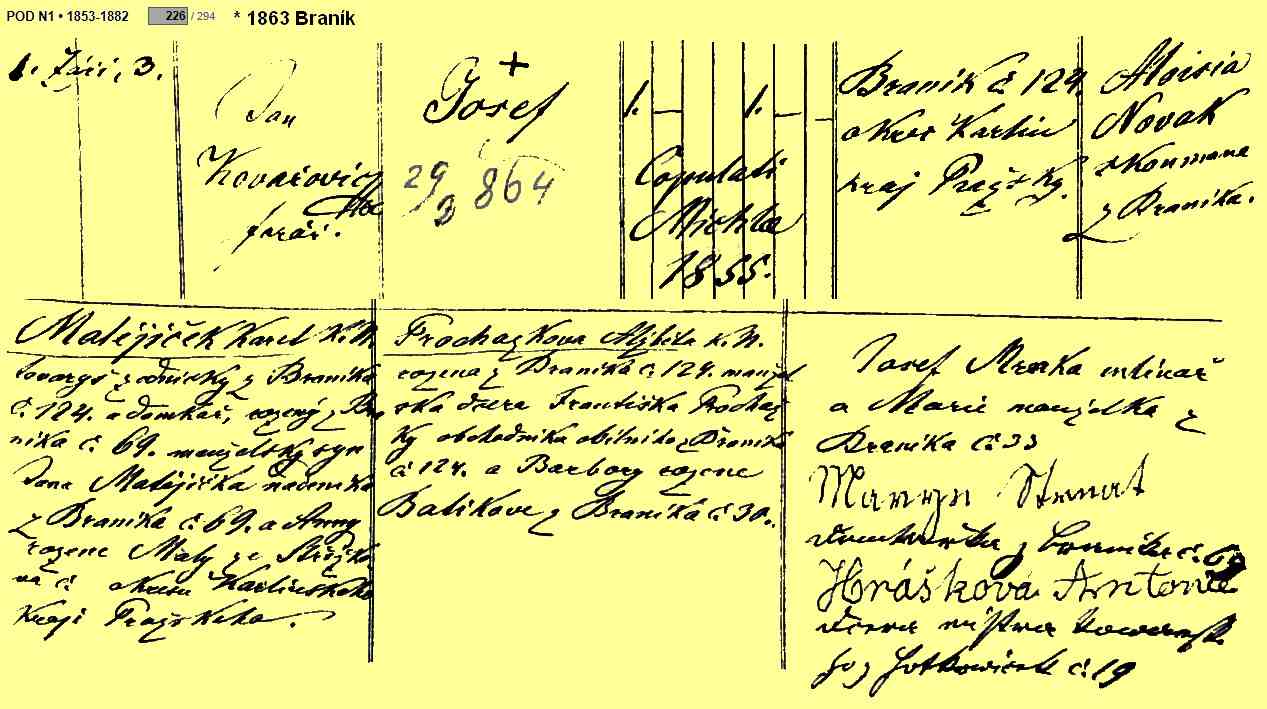 POD N1 • 1853-1882 226 / 294 * 1863 Braník
1. Září, 3.
Jan
Kovařovic
farář.
Josef
29/3 864
1. — 1. — —
Copulati
Michle
1855.
Braník č 124.
okres Karlin
kraj Pražský.
Aloisia
Novak
z Braníka.
Matějíček Karel K.
z Braníka
č. 124. a domkář, rozený z Bra
níka č. 69. manželský syn
Jana Matějíčka nádeníka
z Braníka č 69. a Anny
rozené Maly ze
na č. okresu Karlínského
Kraje Pražského.
Prochazkova Alžběta k. N.
rozena z Braníka č. 124. manžel
ska dcera Františka Prochaz
ky obchodníka obilního z Braníka
č 124. a Barbory rozene
Balikove z Braníka č 30.
Josef Mrzka mlinář
a Marie manželka z
Braníka č 33
Maryn Strnat
domkařka z Braníka č. 69
Hrášková Antonie
dcera mistra kovařsk
ho z Hotkoviček č. 19